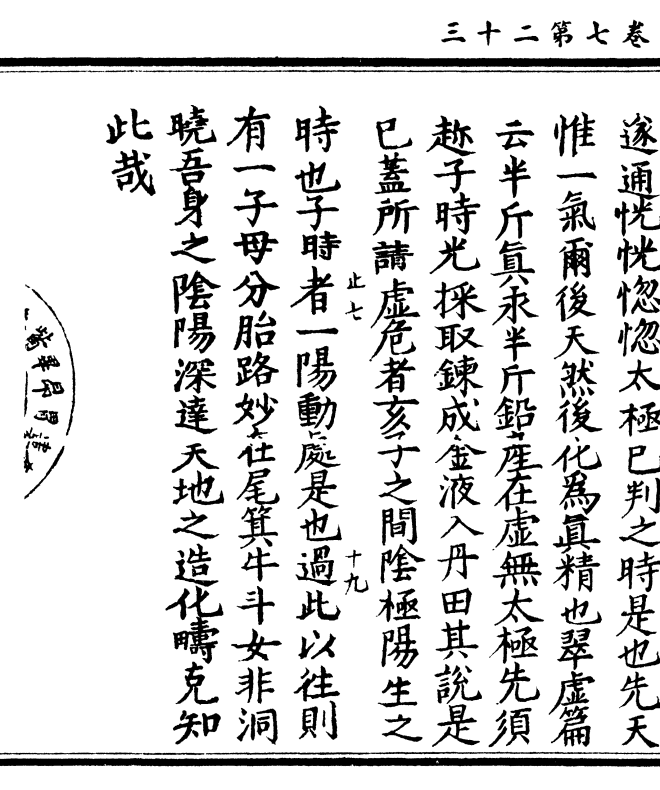 三十二第七卷
遂通恍恍惚惚太極已判之時是也先天
惟一氣爾後天然後化為眞精也翠虛篇
云半斤眞汞半斤鉛產在虛無太極先須
趂子時光採取鍊成金液入丹田其說是
已蓋所謂虛危者亥子之間陰極陽生之
止七
十九
時也子時者一陽動處是也過此以往則
有一子母分胎路妙在尾箕牛斗女非洞
曉吾身之陰陽深達天地之造化疇克知
此哉